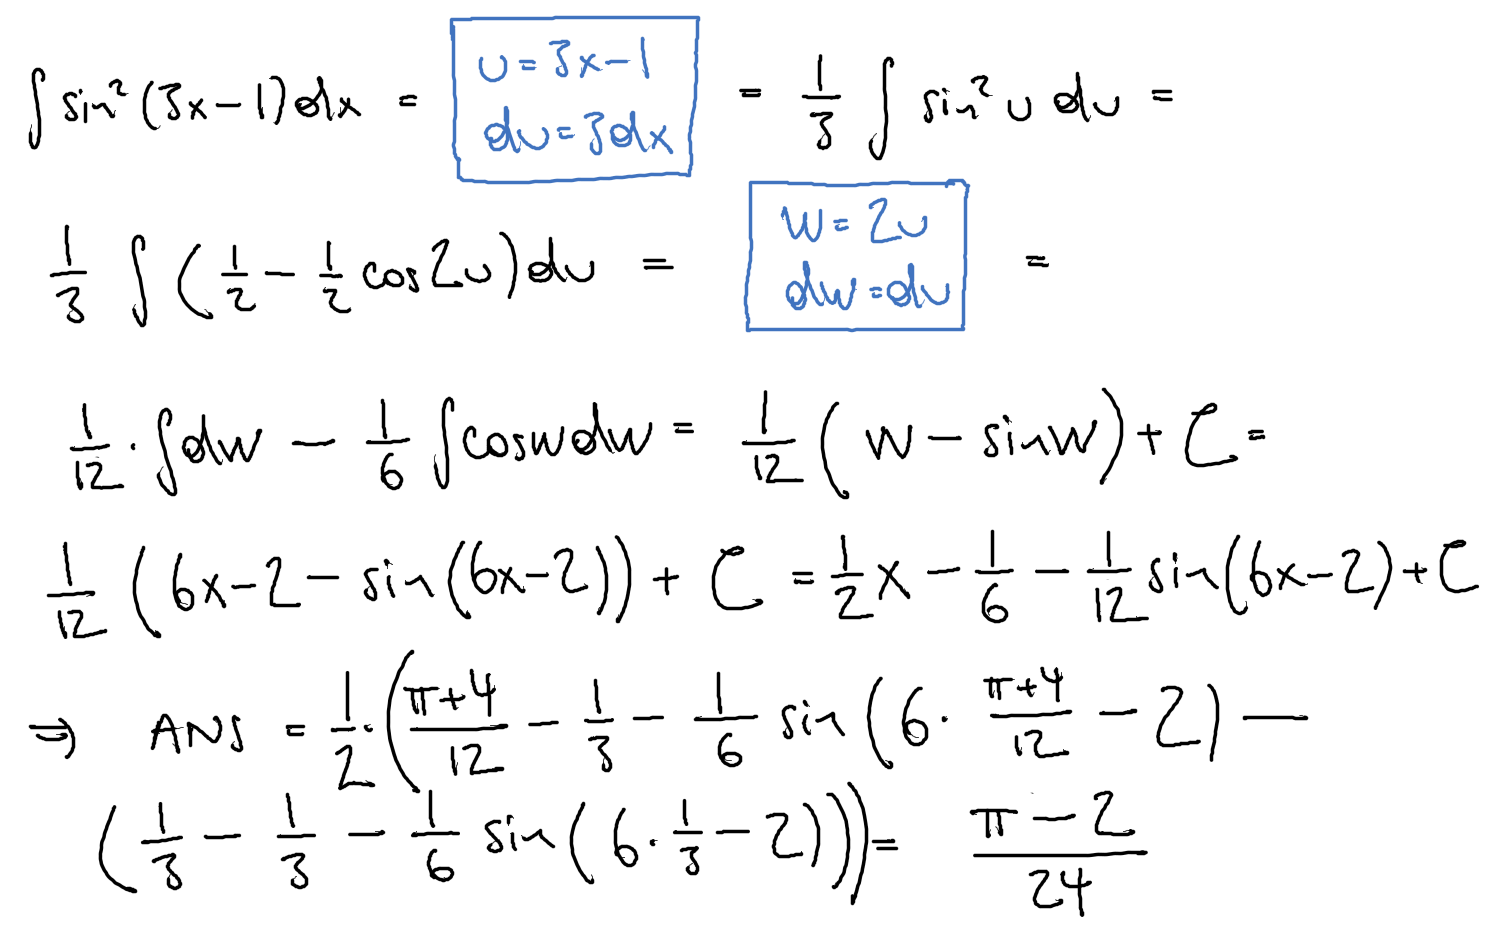 ∫ sin² (3x − 1) dx = [u = 3x − 1 du = 3dx] = 1/3 ∫ sin² u du =
1/3 ∫ (1/2 − 1/2 cos 2u) du = [w = 2u dw = du] =
1/12 · ∫ dw − 1/6 ∫ cos w dw = 1/12 (w − sin w) + C =
1/12 (6x − 2 − sin (6x − 2)) + C = 1/2 x − 1/6 − 1/12 sin (6x − 2) + C
⇒ ANS = 1/2 · ((π+4)/12 − 1/3 − 1/6 sin (6 · (π+4)/12 − 2) −
(1/3 − 1/3 − 1/6 sin (6 · 1/3 − 2))) = (π − 2)/24